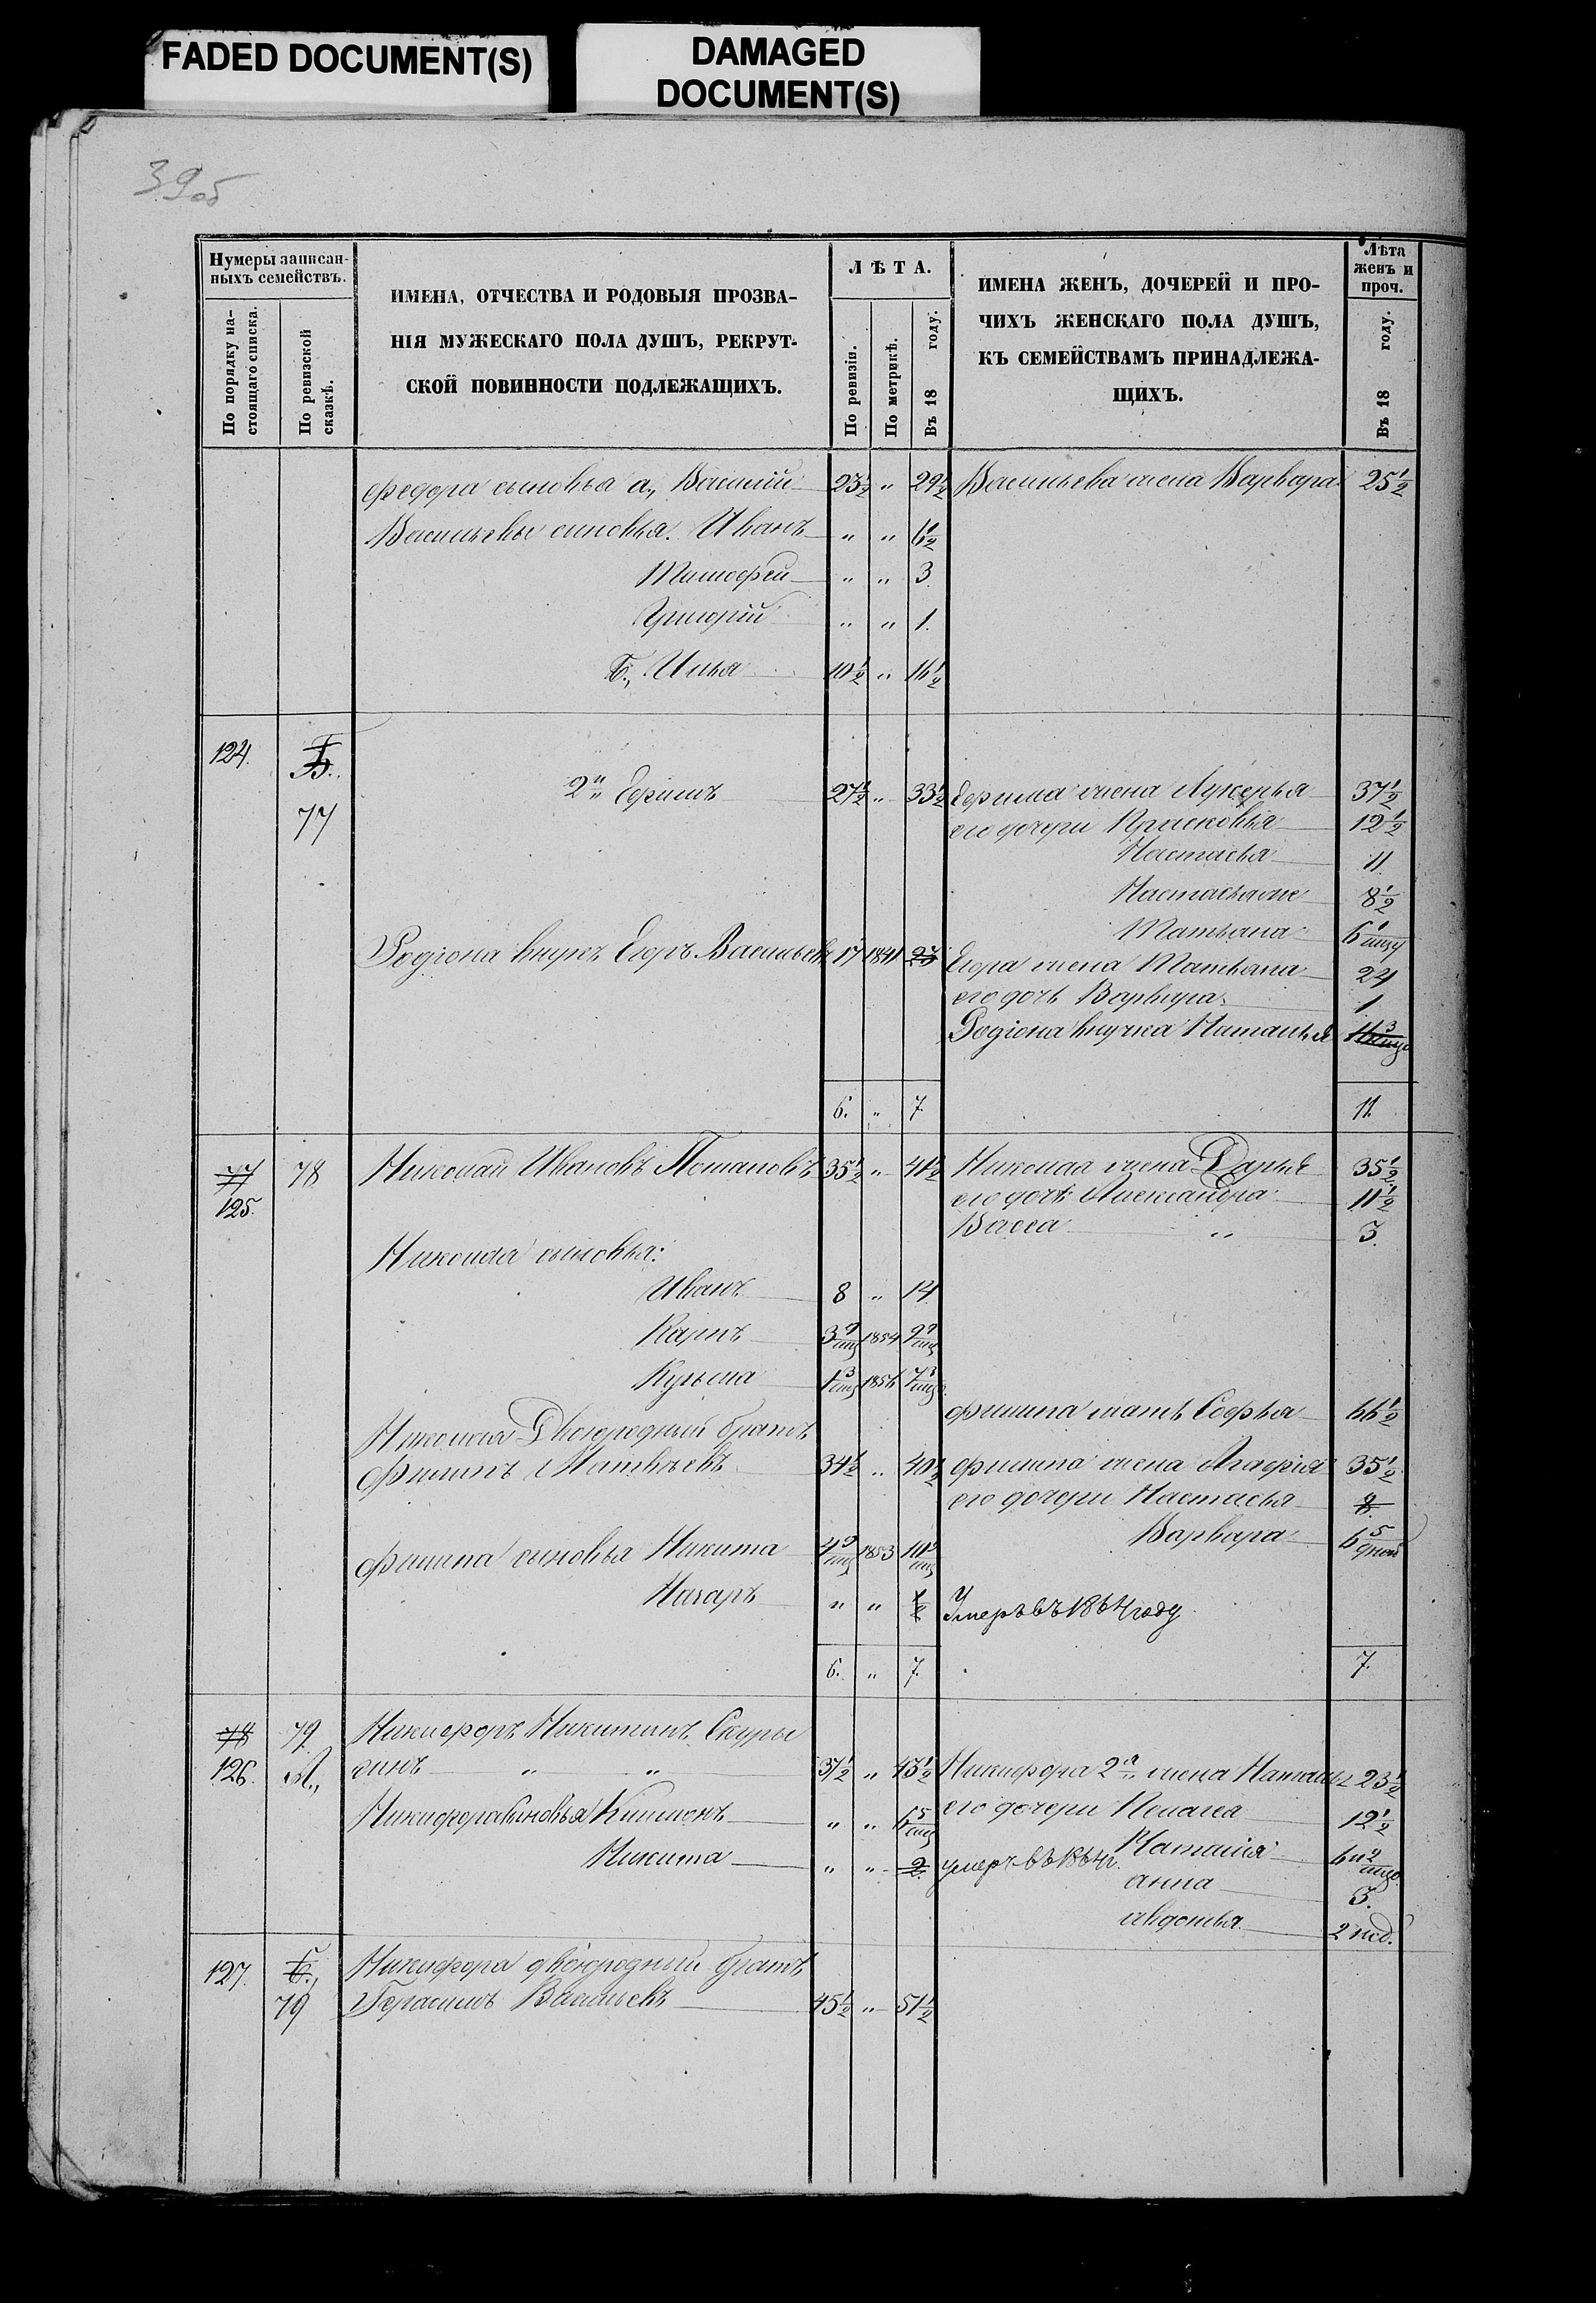 FADED DOCUMENT(S)
DAMAGED
DOCUMENT(S)
39об
Нумеры записан-
ныхъ семействъ.
По порядку на-
стоящаго списка.
По ревизской
сказкѣ.
ИМЕНА, ОТЧЕСТВА И РОДОВЫЯ ПРОЗВА-
НІЯ МУЖЕСКАГО ПОЛА ДУШЪ, РЕКРУТ-
СКОЙ ПОВИННОСТИ ПОДЛЕЖАЩИХЪ.
ЛѢТА.
По ревизіи.
По метрикѣ.
Въ 18 году.
ИМЕНА ЖЕНЪ, ДОЧЕРЕЙ И ПРО-
ЧИХЪ ЖЕНСКАГО ПОЛА ДУШЪ,
КЪ СЕМЕЙСТВАМЪ ПРИНАДЛЕЖА-
ЩИХЪ.
Лѣта
женъ и
проч.
Въ 18 году.
Федора сыновья а,, Василій 23½ " 29½ Васильева жена Варвара 25½
Васильевы сыновья. Иванъ " " 6½
Тимофей " " 3
Григорій " " 1.
Б,, Илья 10½ " 16½
124. Б.
77
2й Ефимъ 27½ " 33½ Ефима жена Лукерья 37½
его дочери Прасковья 12½
Настасья 11.
Настасья же 8½
Матьяна 6
Родіона внукъ Егоръ Васильевъ 17 1841 23 Егора жена Татьяна 24
его дочь Варвара 1
Родіона внучка Наталья
6. " 7. 11.
77 78 Николай Ивановъ Потаповъ 35½ " 41½ Николая жена Дарья 35½
125. его дочь Александра 11½
Васса " 3.
Николая сыновья:
Иванъ 8 " 14
Карпъ 3 9/мц 1854 9 9/мц
Кузьма 1 3/мц 1856 7 3/мц
Филипа мать Софья 66½
Николая Двоюродный братъ
Филипъ Матвѣевъ 34½ " 40½ Филипа жена Агафія 35½
его дочери Настасья 8.
Варвара 6 5/дней
Филипа сыновья Никита 4 9/мц 1853 10 9/мц
Назаръ " " ½ Умеръ въ 1864 году
6. " 7. 7.
78 79 Никифоръ Никитинъ Скуры
126. А,, гинъ " " 37½ " 43½ Никифора 2я жена Наталья 23½
Никифора сыновья Килионъ " " 6 5/мц его дочери Пелагея 12½
Никита " " 2. умеръ въ 1864 г. Наталія 6 и 2/мцо
анна 3.
авдотья 2 нед.
127. Б., Никифора двоюродный братъ
79 Герасимъ Васильевъ 45½ " 51½